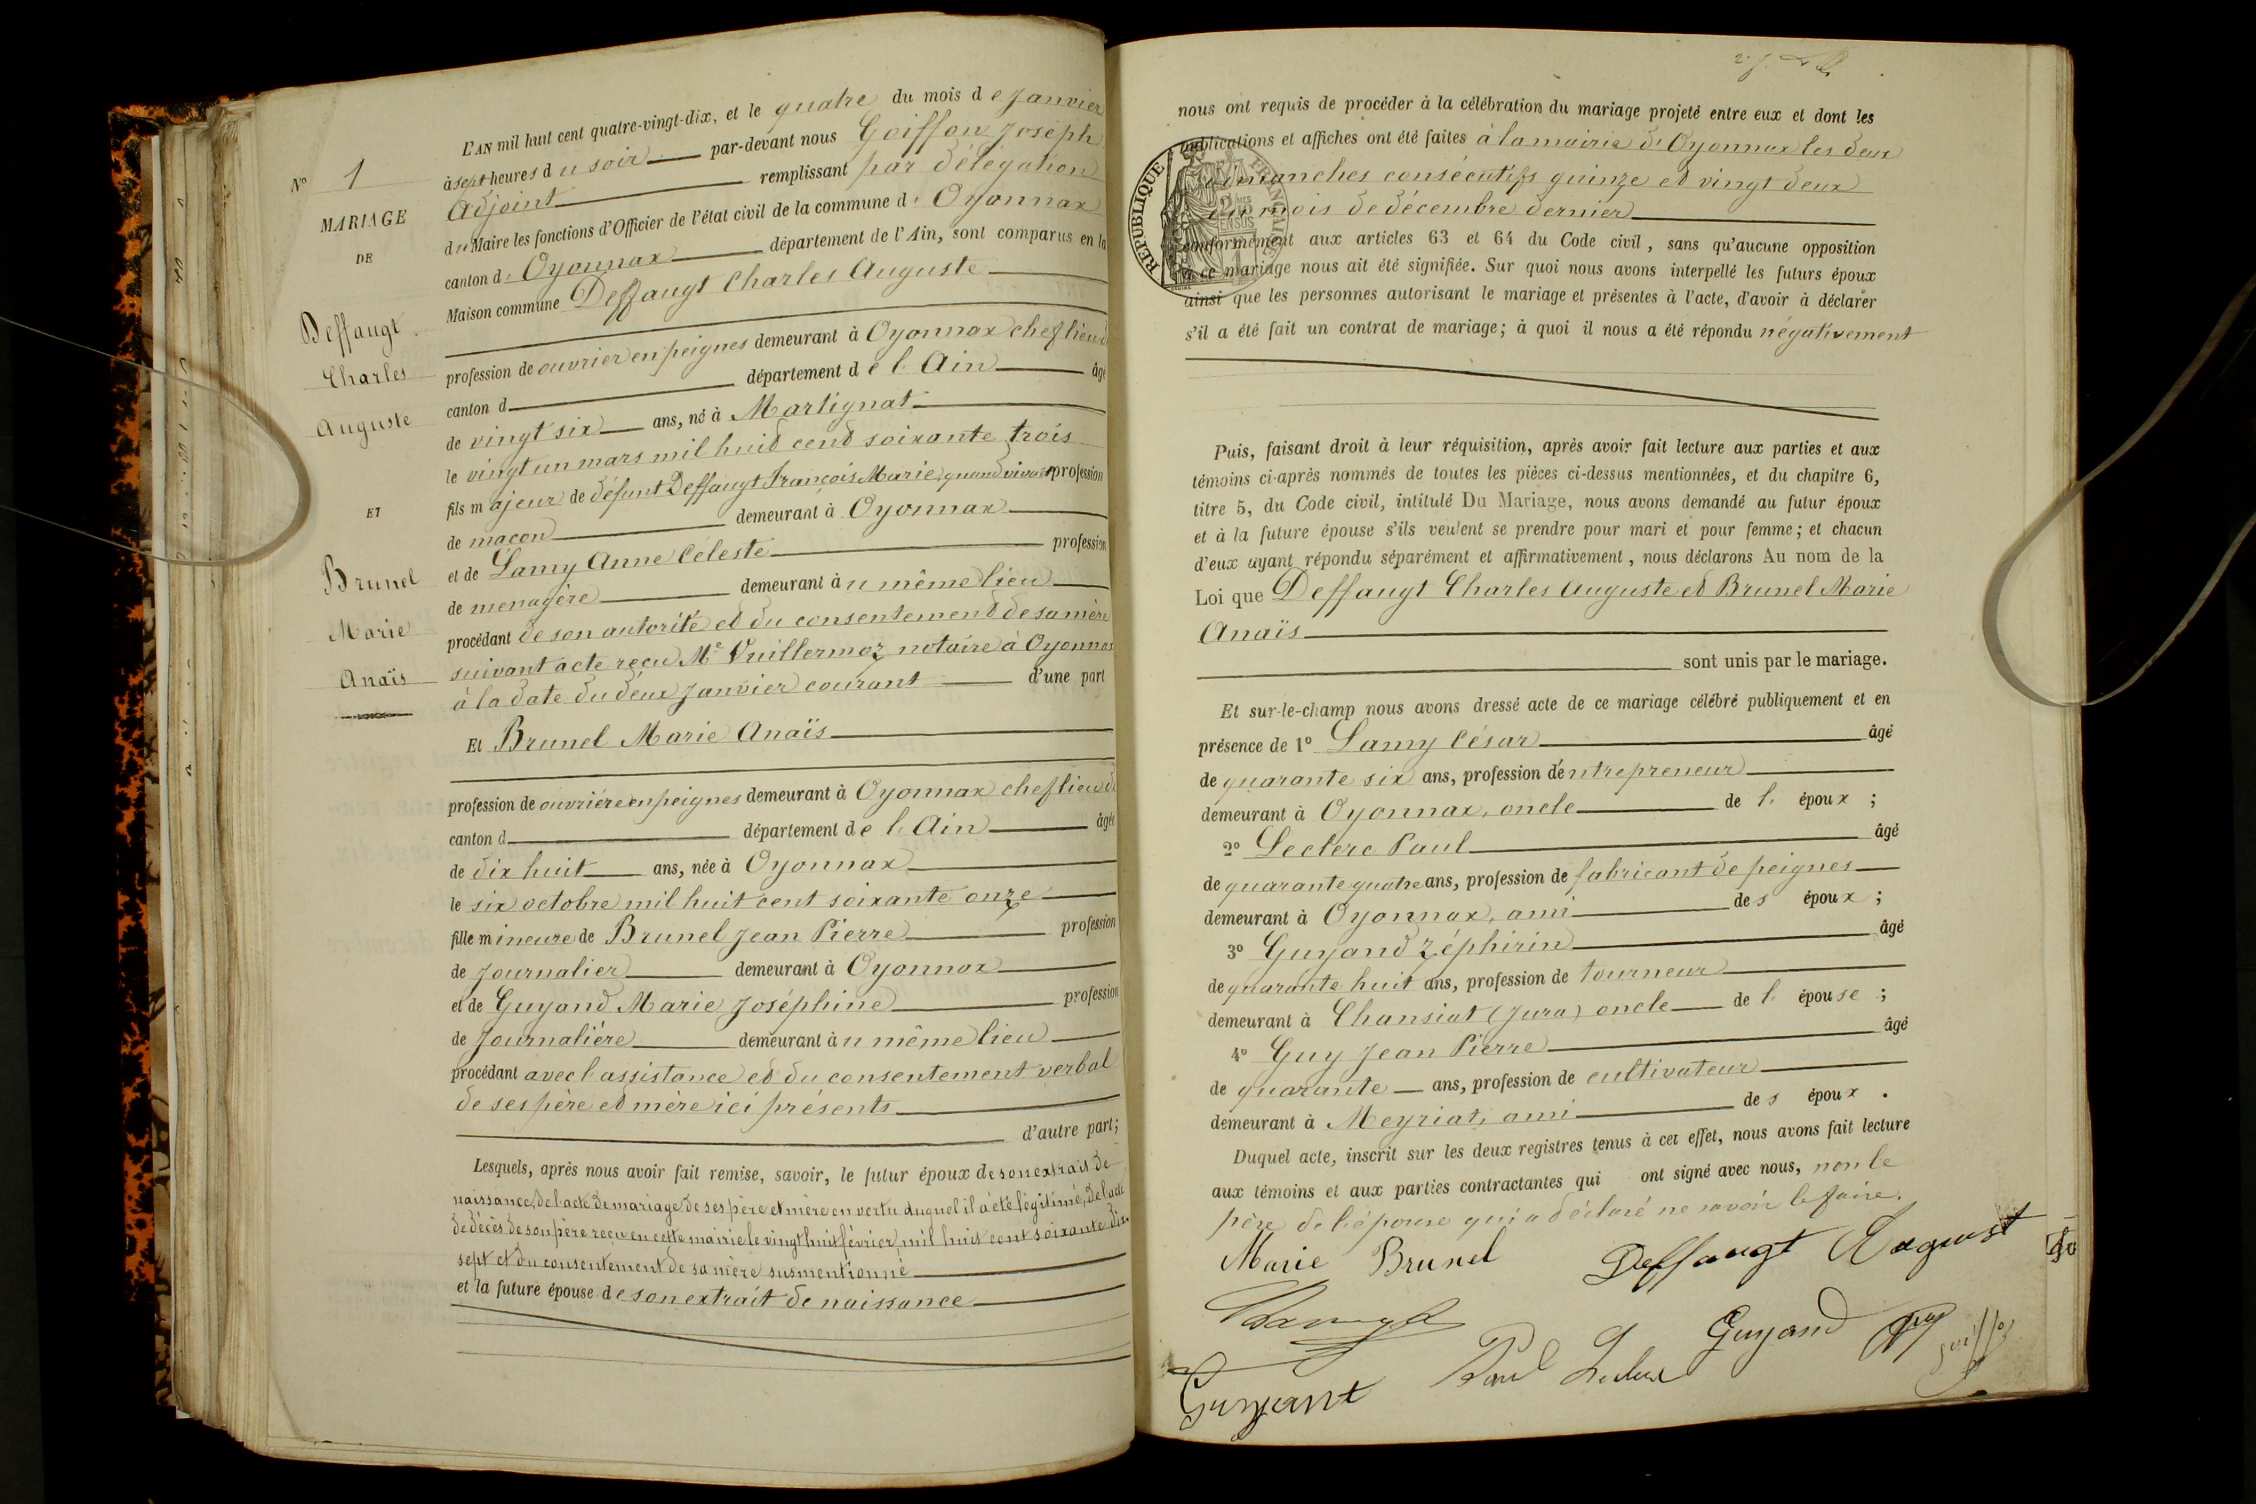 L'AN mil huit cent quatre-vingt-dix, et le quatre du mois de Janvier
à sept heures du soir par-devant nous Goiffon Joseph
Adjoint remplissant par délégation
du Maire les fonctions d'Officier de l'état civil de la commune d' Oyonnax
canton d' Oyonnax département de l'Ain, sont comparus en la
Maison commune Deffaugt Charles Auguste
profession de ouvrier en peignes demeurant à Oyonnax chef lieu d
canton d département de l'Ain âgé
de vingt six ans, né à Martignat
le vingt un mars mil huit cent soixante trois
fils majeur de défunt Deffaugt François Marie, quand vivait profession
de maçon demeurant à Oyonnax
et de Lamy Anne Céleste profession
de menagère demeurant au même lieu
procédant de son autorité et du consentement de sa mère
suivant acte reçu Me Vuillermoz notaire à Oyonnax
à la date du deux Janvier courant d'une part
Et Brunel Marie Anaïs
profession de ouvrière en peignes demeurant à Oyonnax chef lieu d
canton d département de l'Ain âgée
de dix huit ans, née à Oyonnax
le six octobre mil huit cent soixante onze
fille mineure de Brunel Jean Pierre profession
de Journalier demeurant à Oyonnax
et de Guyand Marie Joséphine profession
de Journalière demeurant au même lieu
procédant avec l'assistance et du consentement verbal
de ses père et mère ici présents
d'autre part;
Lesquels, après nous avoir fait remise, savoir, le futur époux de son extrait de
naissance, de l'acte de mariage de ses père et mère en vertu duquel il a été légitimé, de l'acte
de décès de son père reçu en cette mairie le vingt huit février mil huit cent soixante dix-
sept et du consentement de sa mère susmentionné
et la future épouse de son extrait de naissance
N° 1
MARIAGE
DE
Deffaugt
Charles
Auguste
ET
Brunel
Marie
Anaïs
nous ont requis de procéder à la célébration du mariage projeté entre eux et dont les
publications et affiches ont été faites à la mairie d'Oyonnax les deux
dimanches consécutifs quinze et vingt deux
du mois de décembre dernier
conformément aux articles 63 et 64 du Code civil, sans qu'aucune opposition
à ce mariage nous ait été signifiée. Sur quoi nous avons interpellé les futurs époux
ainsi que les personnes autorisant le mariage et présentes à l'acte, d'avoir à déclarer
s'il a été fait un contrat de mariage; à quoi il nous a été répondu négativement
RÉPUBLIQUE FRANÇAISE
Puis, faisant droit à leur réquisition, après avoir fait lecture aux parties et aux
témoins ci-après nommés de toutes les pièces ci-dessus mentionnées, et du chapitre 6,
titre 5, du Code civil, intitulé Du Mariage, nous avons demandé au futur époux
et à la future épouse s'ils veulent se prendre pour mari et pour femme; et chacun
d'eux ayant répondu séparément et affirmativement, nous déclarons Au nom de la
Loi que Deffaugt Charles Auguste et Brunel Marie
Anaïs
sont unis par le mariage.
Et sur-le-champ nous avons dressé acte de ce mariage célébré publiquement et en
présence de 1° Lamy César âgé
de quarante six ans, profession d'entrepreneur
demeurant à Oyonnax, oncle de l' époux ;
2° Leclerc Paul âgé
de quarante quatre ans, profession de fabricant de peignes
demeurant à Oyonnax, ami des époux ;
3° Guyand Zéphirin âgé
de quarante huit ans, profession de tourneur
demeurant à Chansiat (Jura) oncle de l' épouse ;
4° Guy Jean Pierre âgé
de quarante ans, profession de cultivateur
demeurant à Meyriat, ami des époux .
Duquel acte, inscrit sur les deux registres tenus à cet effet, nous avons fait lecture
aux témoins et aux parties contractantes qui ont signé avec nous, non le
père de l'épouse qui a déclaré ne savoir le faire.
Marie Brunel Deffaugt August
Paul Leclerc Guyand Guy Goiffon
Guyant